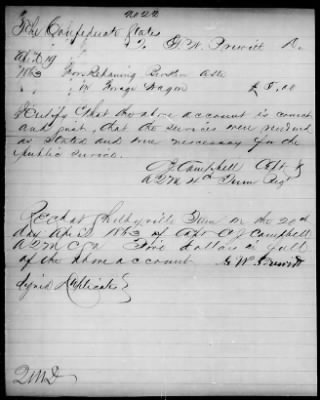 2022
The Confederate States
To G. W. Prewitt Dr
Apl 19
1863 For Repairing Broken Axle
" " on Forage Wagon $ 5.00
I certify that the above account is correct
and just, that the services were rendered
as stated and were necessary for the
public service.
Campbell Capt &
A Q M 4th Tenn Regt
Recd at Shelbyville Tenn on the 20th
day April 1863 of Capt Campbell
A Q M C S A Five dollars in full
of the above account G W Prewitt
signed Duplicates